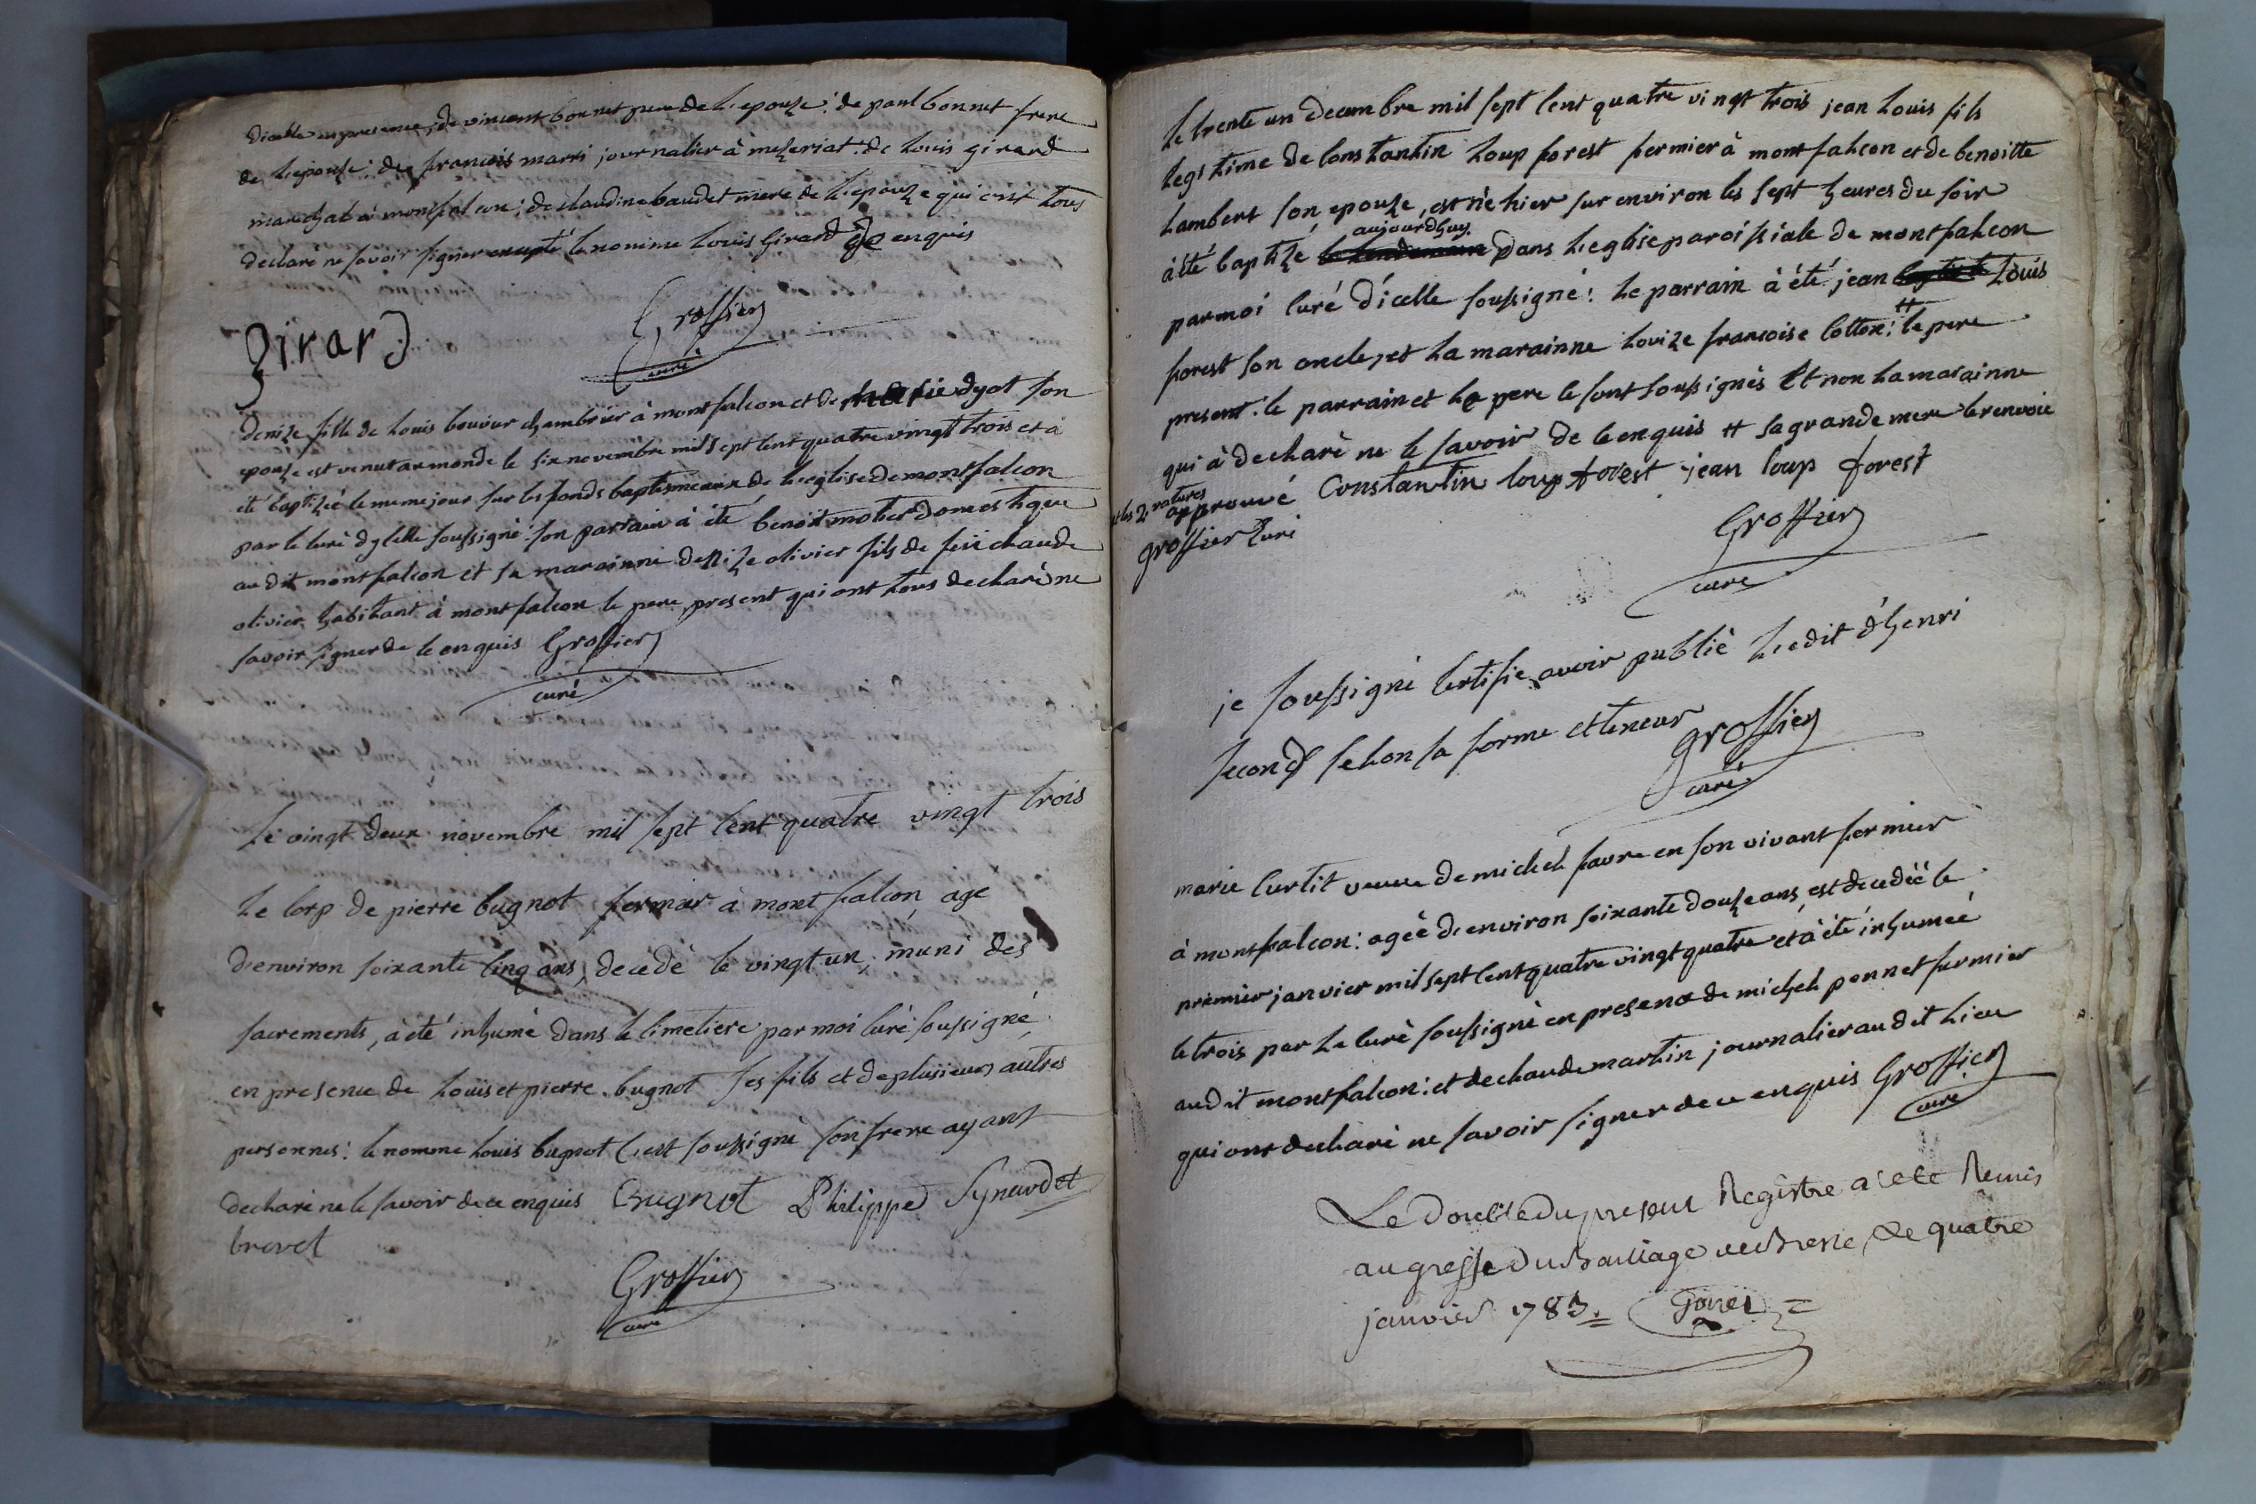 dicelle en presence, de vincent bonnet pere de l'epouse: de paul bonnet frere
de l'epouse: de françois marri journalier à mezeriat: de louis girard
marechal à montfalcon; de claudine baudet mere de l'epouze qui ont tous
declaré ne savoir signer excepté le nomme louis girard de enquis
Groffier
curé
girard
denize fille de louis bouvier chambrier à montfalcon et de marie dyot son
epouse est venut au monde le six novembre mil sept cent quatre vingt trois et a
eté baptizeé le meme jour sur les fonds baptismeaux de l'eglise de montfalcon
par le curé dycelle soussigné: son parrain à été benoit motier domestique
au dit montfalcon et sa marainne denize olivier fils de feu claude
olivier habitant à montfalcon le pere present qui ont tous declaré ne
savoir signer de ce enquis Groffier
curé
Le vingt deux novembre mil sept cent quatre vingt trois
le corp de pierre bugnot fermier à montfalcon, age
d'environ soixante cinq ans, decedé le vingt un, muni des
sacrements, à eté inhumé dans le cimetiere par moi curé soussigné,
en presence de louis et pierre bugnot ses fils et de plusieurs autres
personnes: le nomme louis bugnot c'est soussigné son frere ayant
declaré ne le savoir de ce enquis Bugnot Philippe Synaudet
brevet
Groffier
curé
le trente un decembre mil sept cent quatre vingt trois jean louis fils
legitime de constantin loup forest fermier à montfalcon et de benoitte
lambert son epouze, est né hier sur environ les sept heures du soir
à été baptizé le lendemain aujourdhuy dans l'eglise paroissiale de montfalcon
par moi curé d'icelle soussigné: le parrain à été jean louis
forest son oncle, et la marainne louize françoise cotton; # le pere
present: le parrain et le pere se sont soussignés et non la marainne
qui à declaré ne le savoir de ce enquis # sa grande mere le renvoie
et les 2 ratures
approuvé Constantin loup forest jean loup forest
groffier Curé
Groffier
curé
je soussigné certifie avoir publié l'edit d'henri
second selon sa forme et teneur
groffier
curé
marie curtit veuve de michel favre en son vivant fermier
à montfalcon: ageé d'environ soixante douze ans, est decedéé le
premier janvier mil sept cent quatre vingt quatre et à été inhumeé
le trois par le curé soussigné en presence de michel ponnet fermier
au dit montfalcon: et de claude martin journalier au dit lieu
qui ont declaré ne savoir signer de ce enquis Groffier
curé
Le double du present Registre a eté Remis
au greffe du Bailliage de Bresse, Le quatre
janvier 1783.